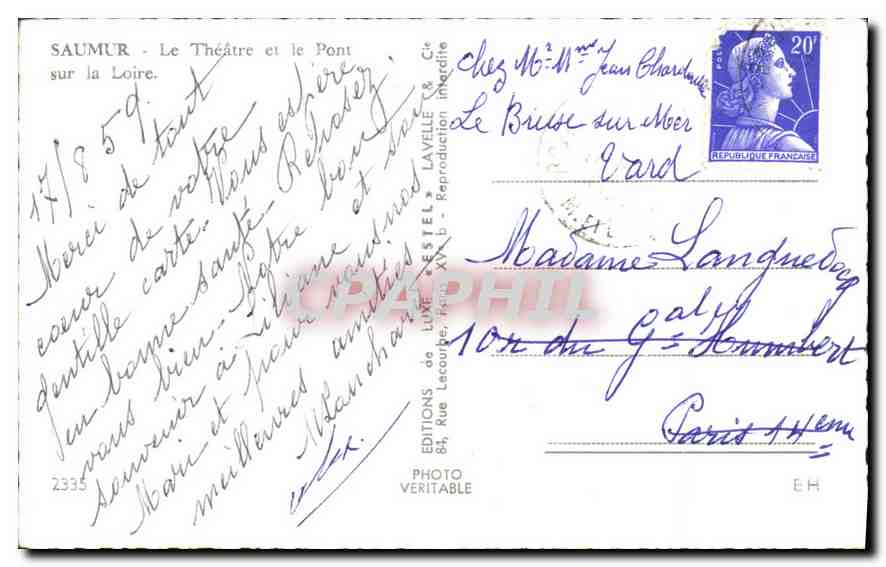 SAUMUR - Le Théâtre et le Pont
sur la Loire.
17/8 59.
Merci de tout
cœur de votre
gentille carte. Nous espère
en bonne santé. Reposez
vous bien. Notre bon
souvenir à Liliane et son
Mari et pour vous nos
meilleures amitiés
2335
EDITIONS de LUXE "ESTEL" LAVELLE & Cie
84, Rue Lecourbe, Paris XVe b - Reproduction interdite
PHOTO
VERITABLE
chez Mr Mme Jean
Le Bruse sur Mer
Vard
POSTES
20F
REPUBLIQUE FRANÇAISE
Madame Languedocq
10 r du Gal Humbert
Paris 14eme
EH
CPAPHIL